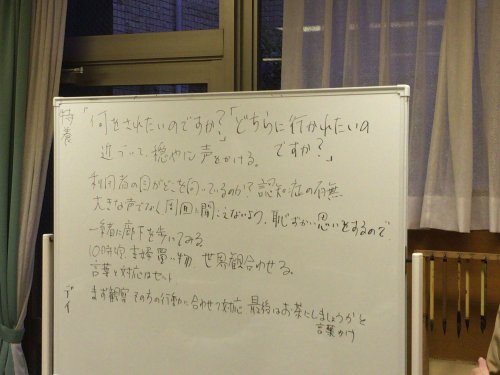 特養「何をされたいのですか?」「どちらに行かれたいの
ですか?」
近づいて、穏やかに声をかける。
利用者の目がどこを向いているのか?認知症の有無
大きな声でなく周囲に聞こえないよう、恥ずかしい思いをするので
一緒に廊下を歩いてみる
10時空、主婦 買い物、世界観合わせる。
言葉と対応はセット
デイ まず観察 その方の行動に合わせつ対応 最後はお茶にしましょうかと
言葉かけ